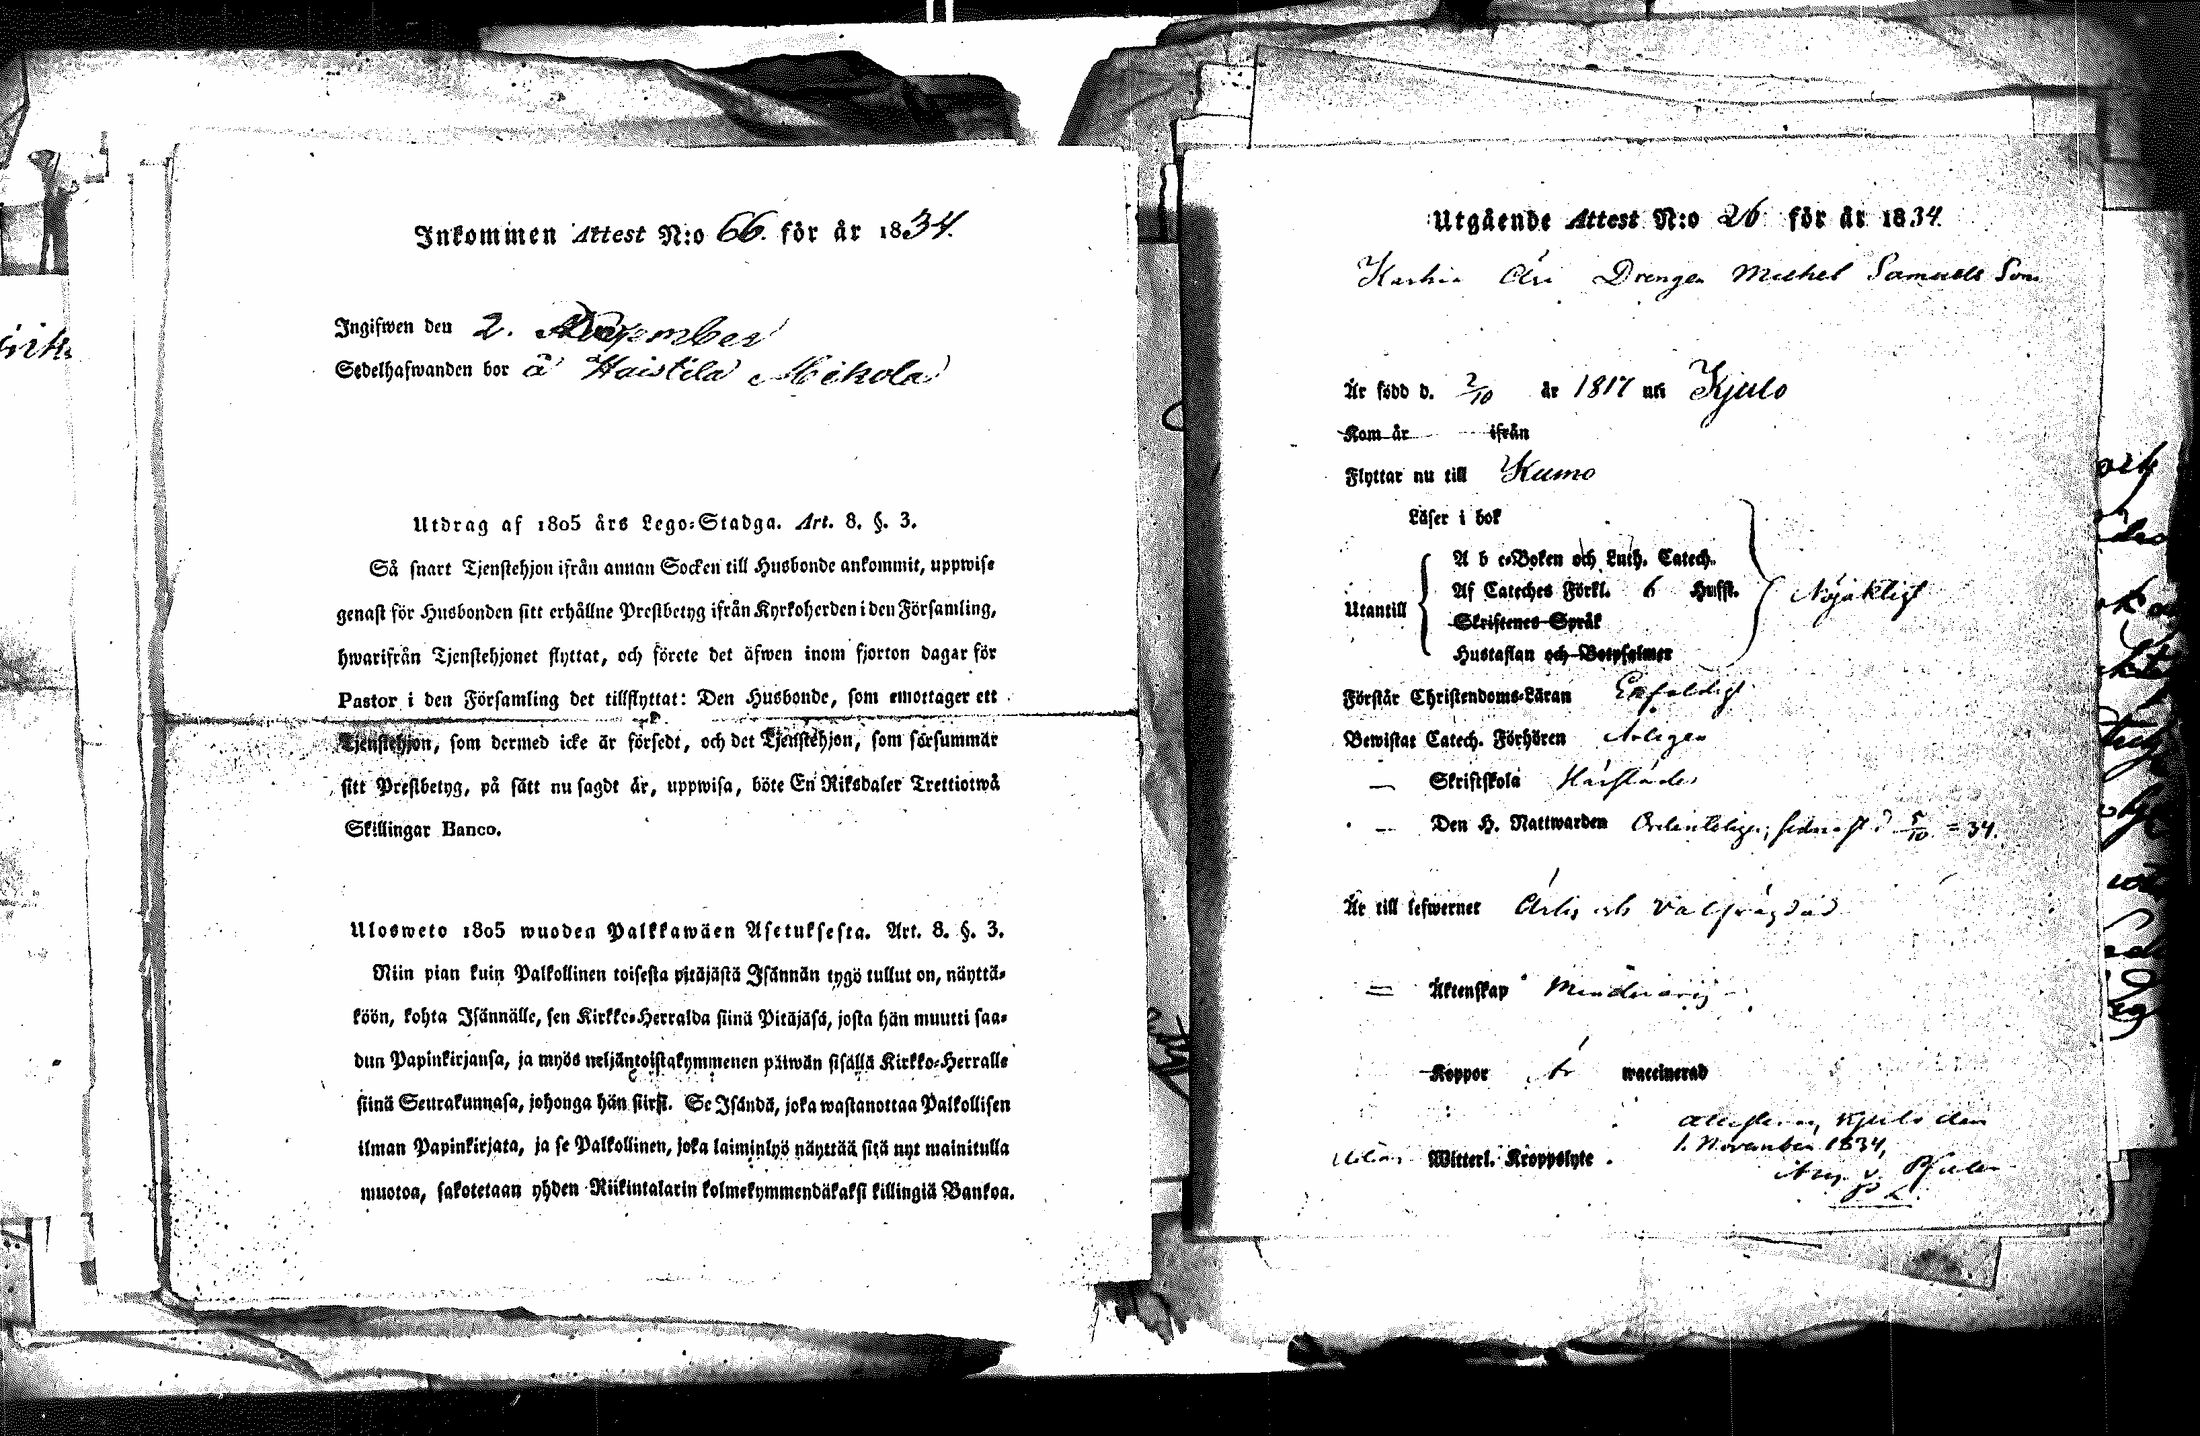 Inkommen Attest N:o 66. för år 1834.
Ingifwen den 2. November
Sedelhafwanden bor å Haistila Mikola
Utdrag af 1805 års Lego-Stadga. Art. 8. §. 3.
Så snart Tjenstehjon ifrån annan Socken till Husbonde ankommit, uppwise
genast för Husbonden sitt erhållne Prestbetyg ifrån Kyrkoherden i den Församling,
hwarifrån Tjenstehjonet flyttat, och förete det äfwen inom fjorton dagar för
Pastor i den Församling det tillflyttat: Den Husbonde, som emottager ett
Tjenstehjon, som dermed icke är försedt, och det Tjenstehjon, som försummar
sitt Prestbetyg, på sätt nu sagdt är, uppwisa, böte En Riksdaler Trettiotwå
Skillingar Banco.
Ulosweto 1805 wuoden Palkkawäen Asetuksesta. Art. 8. §. 3.
Niin pian kuin Palkollinen toisesta pitäjästä Isännän tygö tullut on, näyttä-
köön, kohta Isännälle, sen Kirkko-Herralda siinä Pitäjäsä, josta hän muutti saa-
dun Papinkirjansa, ja myös neljäntoistakymmenen päiwän sisällä Kirkko-Herralle
siinä Seurakunnasa, johonga hän siirsi. Se Isändä, joka wastanottaa Palkollisen
ilman Papinkirjata, ja se Palkollinen, joka laiminlyö näyttää sitä nyt mainitulla
muotoa, sakotetaan yhden Riikintalarin kolmekymmendäkaksi killingiä Bankoa.
Utgående Attest N:o 26 för år 1834.
Drengen Michel Samuels Son
Är född d. 2/10 år 1817 uti Kjulo
Kom år ifrån
Flyttar nu till Kumo
Läser i bok
Utantill
A b c-Boken och Luth. Catech.
Af Cateches Förkl. 6 Hufst.
Skriftenes Språk
Hustaflan och Botpsalmer
Nöjaktligt
Förstår Christendoms-Läran Enfaldigt
Bewistat Catech. Förhören Årligen
— Skriftskola Härstädes
— Den H. Nattwarden Ordenteligen, sednast d 5/10 = 34.
Är till lefwernet Ärlig och välfrägdad
= Äktenskap Minderårig
Koppor Är waccinerad
Utan Witterl. Kroppslyte.
Kjulo den
1. November 1834,